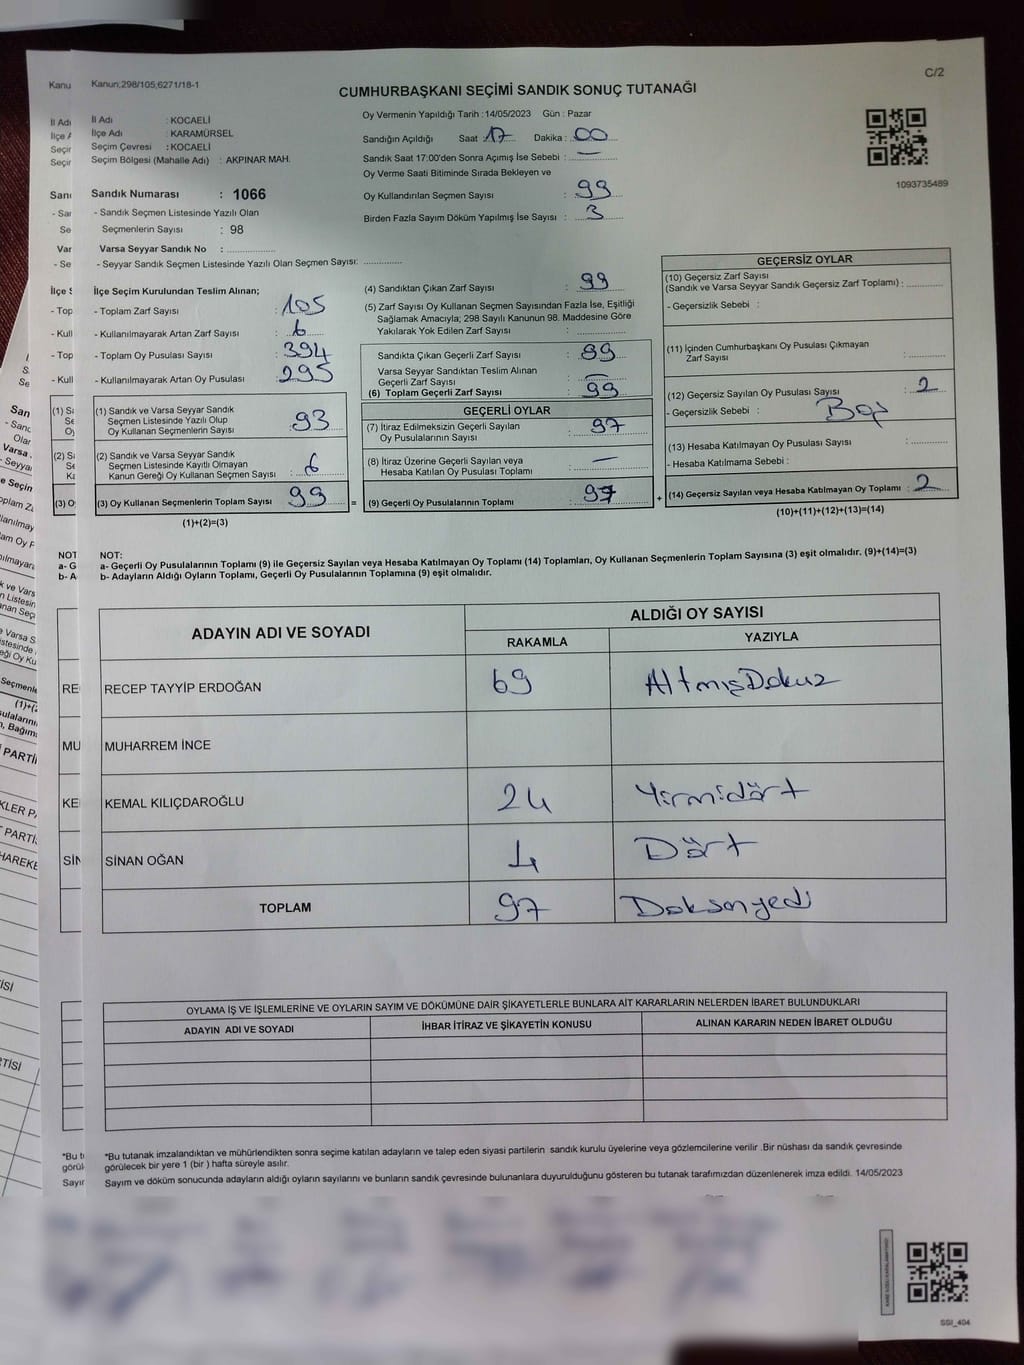 C/2
Kanun;298/105,6271/18-1
CUMHURBAŞKANI SEÇİMİ SANDIK SONUÇ TUTANAĞI
İl Adı : KOCAELİ
İlçe Adı : KARAMÜRSEL
Seçim Çevresi : KOCAELİ
Seçim Bölgesi (Mahalle Adı) : AKPINAR MAH.
Sandık Numarası : 1066
- Sandık Seçmen Listesinde Yazılı Olan
Seçmenlerin Sayısı : 98
Varsa Seyyar Sandık No : ...............
- Seyyar Sandık Seçmen Listesinde Yazılı Olan Seçmen Sayısı: ............
Oy Vermenin Yapıldığı Tarih : 14/05/2023 Gün : Pazar
Sandığın Açıldığı Saat 17 Dakika : 00
Sandık Saat 17:00'den Sonra Açımış İse Sebebi : —
Oy Verme Saati Bitiminde Sırada Bekleyen ve
Oy Kullandırılan Seçmen Sayısı : 99
Birden Fazla Sayım Döküm Yapılmış İse Sayısı : 3
1093735489
İlçe Seçim Kurulundan Teslim Alınan;
- Toplam Zarf Sayısı : 105
- Kullanılmayarak Artan Zarf Sayısı : 6
- Toplam Oy Pusulası Sayısı : 394
- Kullanılmayarak Artan Oy Pusulası : 295
(1) Sandık ve Varsa Seyyar Sandık
Seçmen Listesinde Yazılı Olup
Oy Kullanan Seçmenlerin Sayısı : 93
(2) Sandık ve Varsa Seyyar Sandık
Seçmen Listesinde Kayıtlı Olmayan
Kanun Gereği Oy Kullanan Seçmen Sayısı : 6
(3) Oy Kullanan Seçmenlerin Toplam Sayısı : 99
(1)+(2)=(3)
(4) Sandıktan Çıkan Zarf Sayısı : 99
(5) Zarf Sayısı Oy Kullanan Seçmen Sayısından Fazla İse, Eşitliği
Sağlamak Amacıyla; 298 Sayılı Kanunun 98. Maddesine Göre
Yakılarak Yok Edilen Zarf Sayısı : ...............
Sandıkta Çıkan Geçerli Zarf Sayısı : 99
Varsa Seyyar Sandıktan Teslim Alınan
Geçerli Zarf Sayısı : —
(6) Toplam Geçerli Zarf Sayısı : 99
GEÇERLİ OYLAR
(7) İtiraz Edilmeksizin Geçerli Sayılan
Oy Pusulalarının Sayısı : 97
(8) İtiraz Üzerine Geçerli Sayılan veya
Hesaba Katılan Oy Pusulası Toplamı : —
= (9) Geçerli Oy Pusulalarının Toplamı : 97
GEÇERSİZ OYLAR
(10) Geçersiz Zarf Sayısı
(Sandık ve Varsa Seyyar Sandık Geçersiz Zarf Toplamı) : ............
- Geçersizlik Sebebi :
(11) İçinden Cumhurbaşkanı Oy Pusulası Çıkmayan
Zarf Sayısı : ............
(12) Geçersiz Sayılan Oy Pusulası Sayısı : 2
- Geçersizlik Sebebi :
(13) Hesaba Katılmayan Oy Pusulası Sayısı : ............
- Hesaba Katılmama Sebebi :
+ (14) Geçersiz Sayılan veya Hesaba Katılmayan Oy Toplamı : 2
(10)+(11)+(12)+(13)=(14)
NOT:
a- Geçerli Oy Pusulalarının Toplamı (9) ile Geçersiz Sayılan veya Hesaba Katılmayan Oy Toplamı (14) Toplamları, Oy Kullanan Seçmenlerin Toplam Sayısına (3) eşit olmalıdır. (9)+(14)=(3)
b- Adayların Aldığı Oyların Toplamı, Geçerli Oy Pusulalarının Toplamına (9) eşit olmalıdır.
ADAYIN ADI VE SOYADI
ALDIĞI OY SAYISI
RAKAMLA YAZIYLA
RECEP TAYYİP ERDOĞAN 69 AltmışDokuz
MUHARREM İNCE
KEMAL KILIÇDAROĞLU 24 Yirmidört
SİNAN OĞAN 4 Dört
TOPLAM 97 Doksanyedi
OYLAMA İŞ VE İŞLEMLERİNE VE OYLARIN SAYIM VE DÖKÜMÜNE DAİR ŞİKAYETLERLE BUNLARA AİT KARARLARIN NELERDEN İBARET BULUNDUKLARI
ADAYIN ADI VE SOYADI İHBAR İTİRAZ VE ŞİKAYETİN KONUSU ALINAN KARARIN NEDEN İBARET OLDUĞU
*Bu tutanak imzalandıktan ve mühürlendikten sonra seçime katılan adayların ve talep eden siyasi partilerin sandık kurulu üyelerine veya gözlemcilerine verilir .Bir nüshası da sandık çevresinde
görülecek bir yere 1 (bir ) hafta süreyle asılır.
Sayım ve döküm sonucunda adayların aldığı oyların sayılarını ve bunların sandık çevresinde bulunanlara duyurulduğunu gösteren bu tutanak tarafımızdan düzenlenerek imza edildi. 14/05/2023
SGI_404